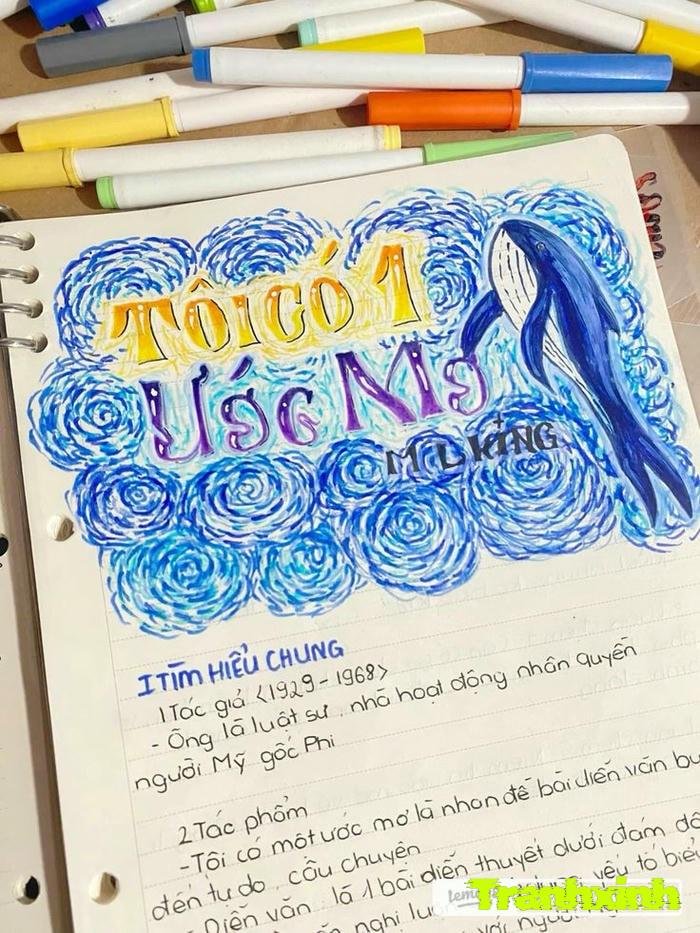 TÔI CÓ 1
ƯỚC MƠ
M L KING
I TÌM HIỂU CHUNG
1 Tác giả <1929-1968>
- Ông là luật sư, nhà hoạt động nhân quyền
người Mỹ gốc Phi
2 Tác phẩm
- Tôi có một ước mơ là nhan đề bài diễn văn bu
đến tự do, câu chuyện
- Diễn văn: là 1 bài diễn thuyết dưới đám đô
nghị luậ yếu tố biể
với người
Tranhxinh